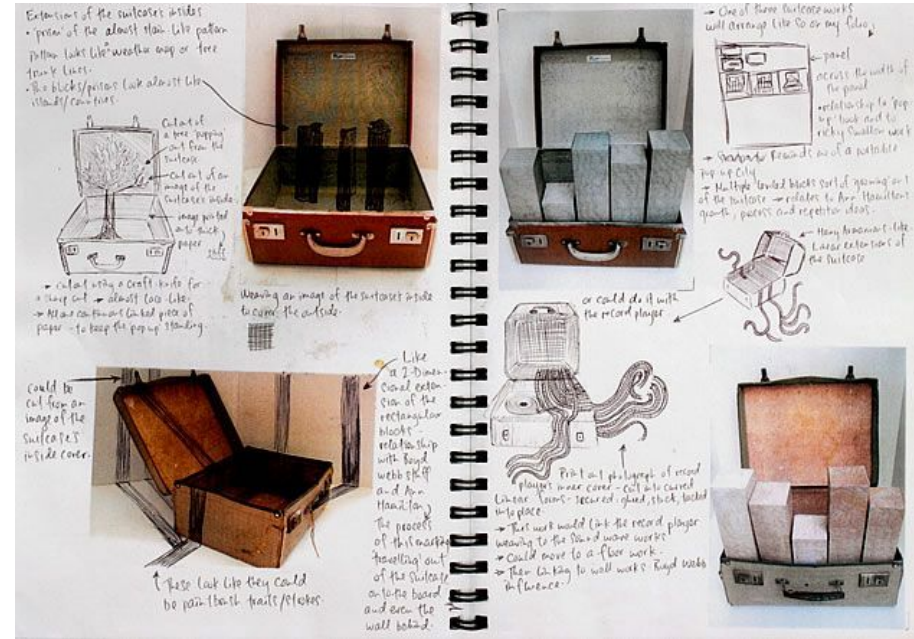 Extensions of the suitcase's insides
• 'prism' of the almost stain-like pattern
Pattern looks like weather map or tree
trunk lines.
• The blocks/prisms look almost like
islands/countries.
Cut out of
a tree 'popping'
out from the
suitcase
cut out of an
image of the
suitcase's inside.
image printed
onto thick
paper
→ cut out using a craft knife for
a sharp cut → almost lace-like.
→ All one continuous linked piece of
paper - to keep the pop up standing.
Weaving an image of the suitcase's inside
to cover the outside.
could be
cut from an
image of the
suitcase's
inside cover.
These look like they could
be paintbrush trails/strokes.
Like
a 2-Dimen-
sional exten-
sion of the
rectangular
blocks -
relationship
with Boyd
Webb stuff
and Ann
Hamilton
The process
of this marking
'travelling' out
of the suitcase
onto the board
and even the
wall behind.
→ One of these suitcase works
will arrange like so on my folio,
panel
across the width of
the panel
• relationship to 'pop
up' book and to
ricky Swallow work
→ Reminds me of a portable
pop-up City
→ Multiple blocks sort of 'growing' out
of the suitcase → relates to Ann Hamilton's
growth, process and repetition ideas.
Linear extensions of
the suitcase
or could do it with
the record player
Print out photograph of record
player's inner cover - cut into curved
Linear forms - secured: glued, stuck, locked
into place.
→ This work would link the record player
weaving to the sound wave works
→ Could move to a floor work -
→ Then linking to wall works Boyd Webb
influence.